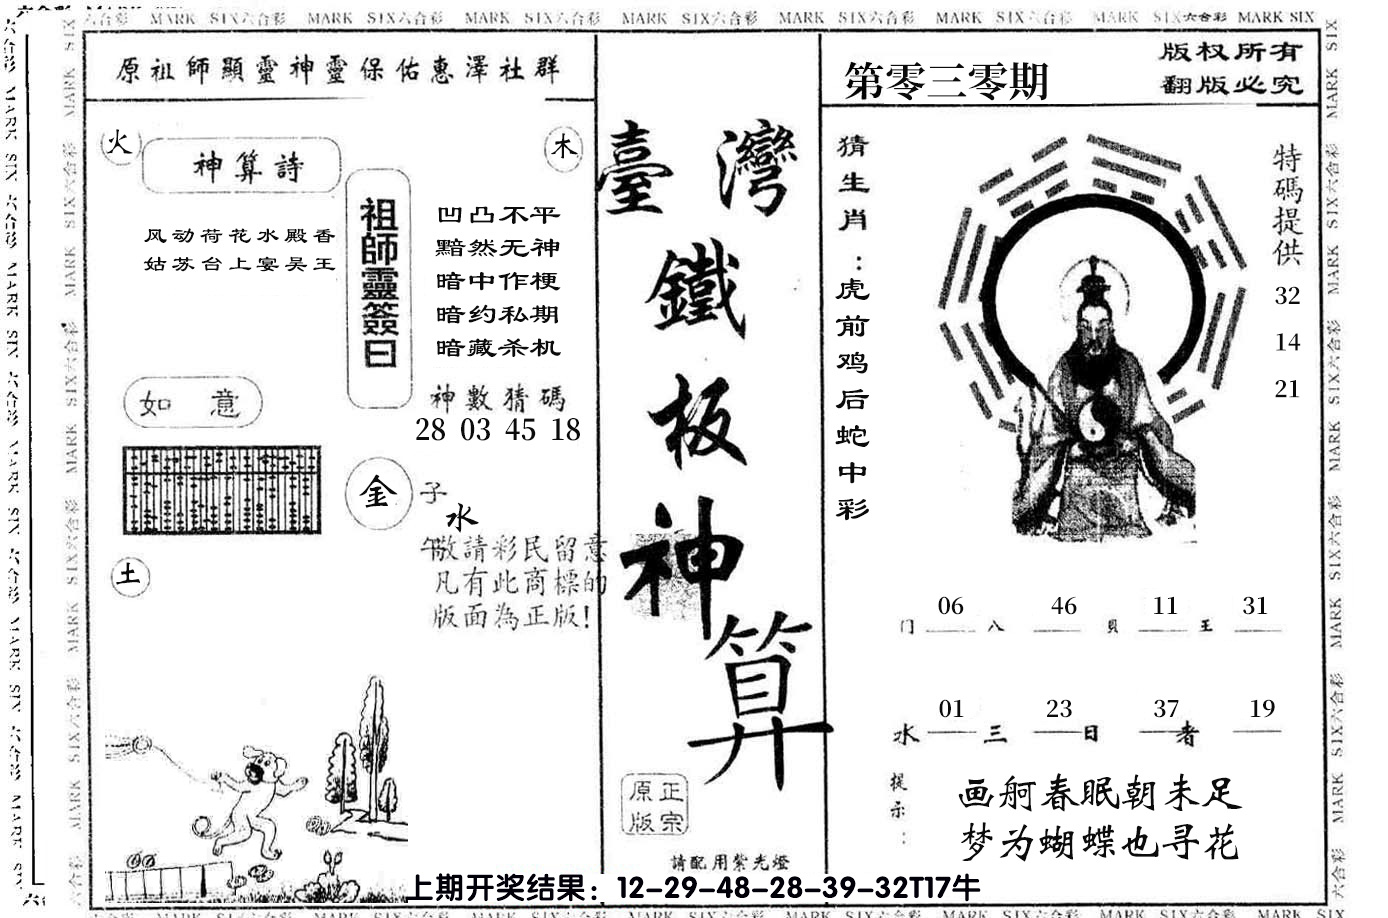 六合彩 MARK SIX六合彩 MARK SIX六合彩 MARK SIX六合彩 MARK SIX六合彩 MARK SIX六合彩 MARK SIX六合彩 MARK SIX六合彩 MARK SIX
原祖師顯靈神靈保佑惠澤社群
火
木
神算詩
风动荷花水殿香
姑苏台上宴吴王
祖師靈簽曰
凹凸不平
黯然无神
暗中作梗
暗约私期
暗藏杀机
神數猜碼
28 03 45 18
如意
金
子
水
午
敬請彩民留意
凡有此商標的
版面為正版!
土
臺灣
鐵
板
神
算
原正
版宗
請配用紫光燈
第零三零期
版权所有
翻版必究
猜生肖:虎前鸡后蛇中彩
特碼提供
32
14
21
06 46 11 31
门 八 貝 王
01 23 37 19
水 三 日 者
提示:
画舸春眠朝未足
梦为蝴蝶也寻花
上期开奖结果：12-29-48-28-39-32T17牛